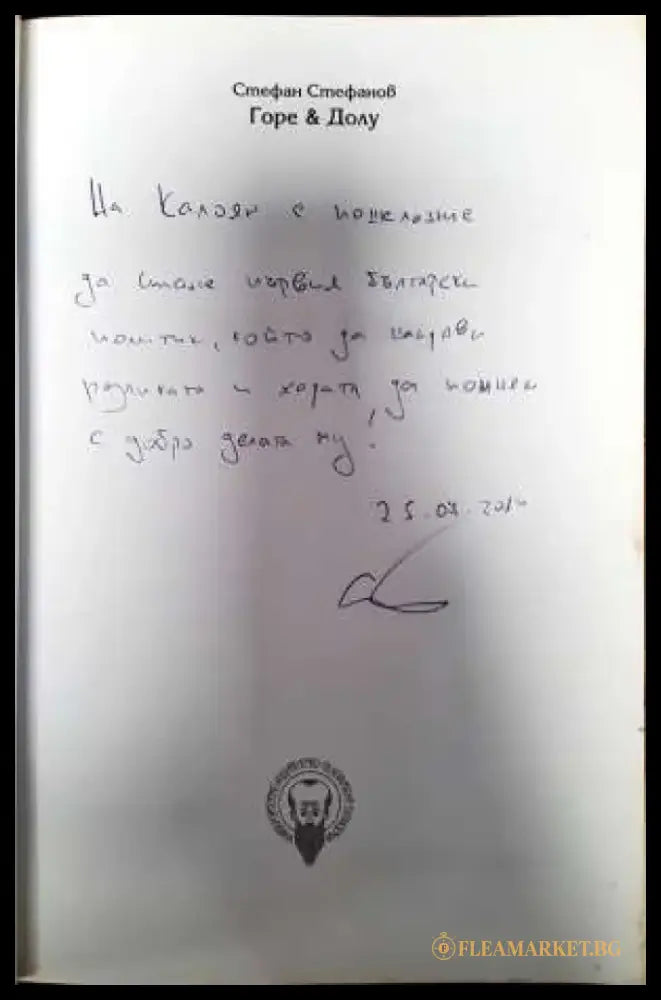 Стефан Стефанов
Горе & Долу
На Калоян с пожелание
да стане първия български
политик, който да направи
разликата и хората да помнят
с добро делата му!
FLEAMARKET.BG